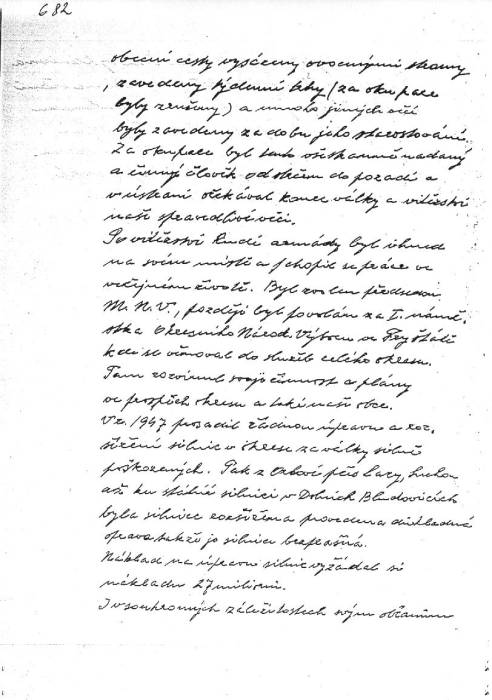 682
obecní cesty vysázeny ovocnými stromy
, zavedeny týdenní trhy (za okupace
byly zrušeny) a mnoho jiných věcí
byly zavedeny za dobu jeho starostování.
Za okupace byl tento všestranně nadaný
a činný člověk odstrčen do pozadí a
v ústraní očekával konec války a vítězství
naší spravedlivé věci.
Po vítězství Rudé armády byl ihned
na svém místě a chopil se práce ve
veřejném životě. Byl zvolen předsedou
M.N.V., později byl povolán za I. náměs-
tka Okresního Národ. Výboru ve Fryštátě
kde se věnoval do služeb celého okresu.
Tam rozvinul svoji činnost a plány
ve prospěch okresu a také naší obce.
V r. 1947 prosadil řádnou úpravu a roz-
šíření silnic v okrese za války silně
poškozených. Pak z Orlové přes Lazy, Suchou
až ku státní silnici v Dolních Bludovicích
byla silnice rozšířena provedena důkladná
oprava takže je silnice bezprašná.
Náklad na úpravu silnic vyžádal si
nákladu 27 milionů.
I v soukromých záležitostech svým občanům